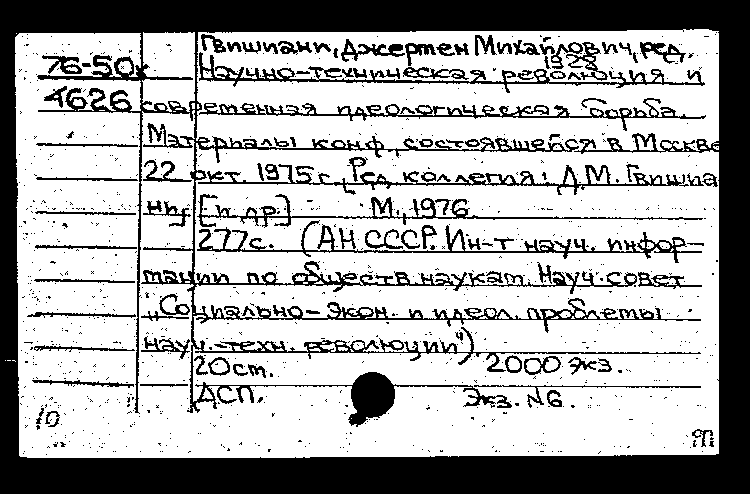 Гвишиани, Джермен Михайлович, ред.
1928
76-50к Научно-техническая революция и
4626 современная идеологическая борьба.
Материалы конф., состоявшейся в Москве
22 окт. 1975 г., Ред. коллегия: Д.М. Гвишиа-
ни, [и др.] М., 1976
277с. (АН СССР. Ин-т науч. инфор-
мации по обществ. наукам. Науч. совет
"Социально-экон. и идеол. проблемы
науч.-техн. революции").
20 ст. 2000 экз.
ДСП. Экз. №6.
10